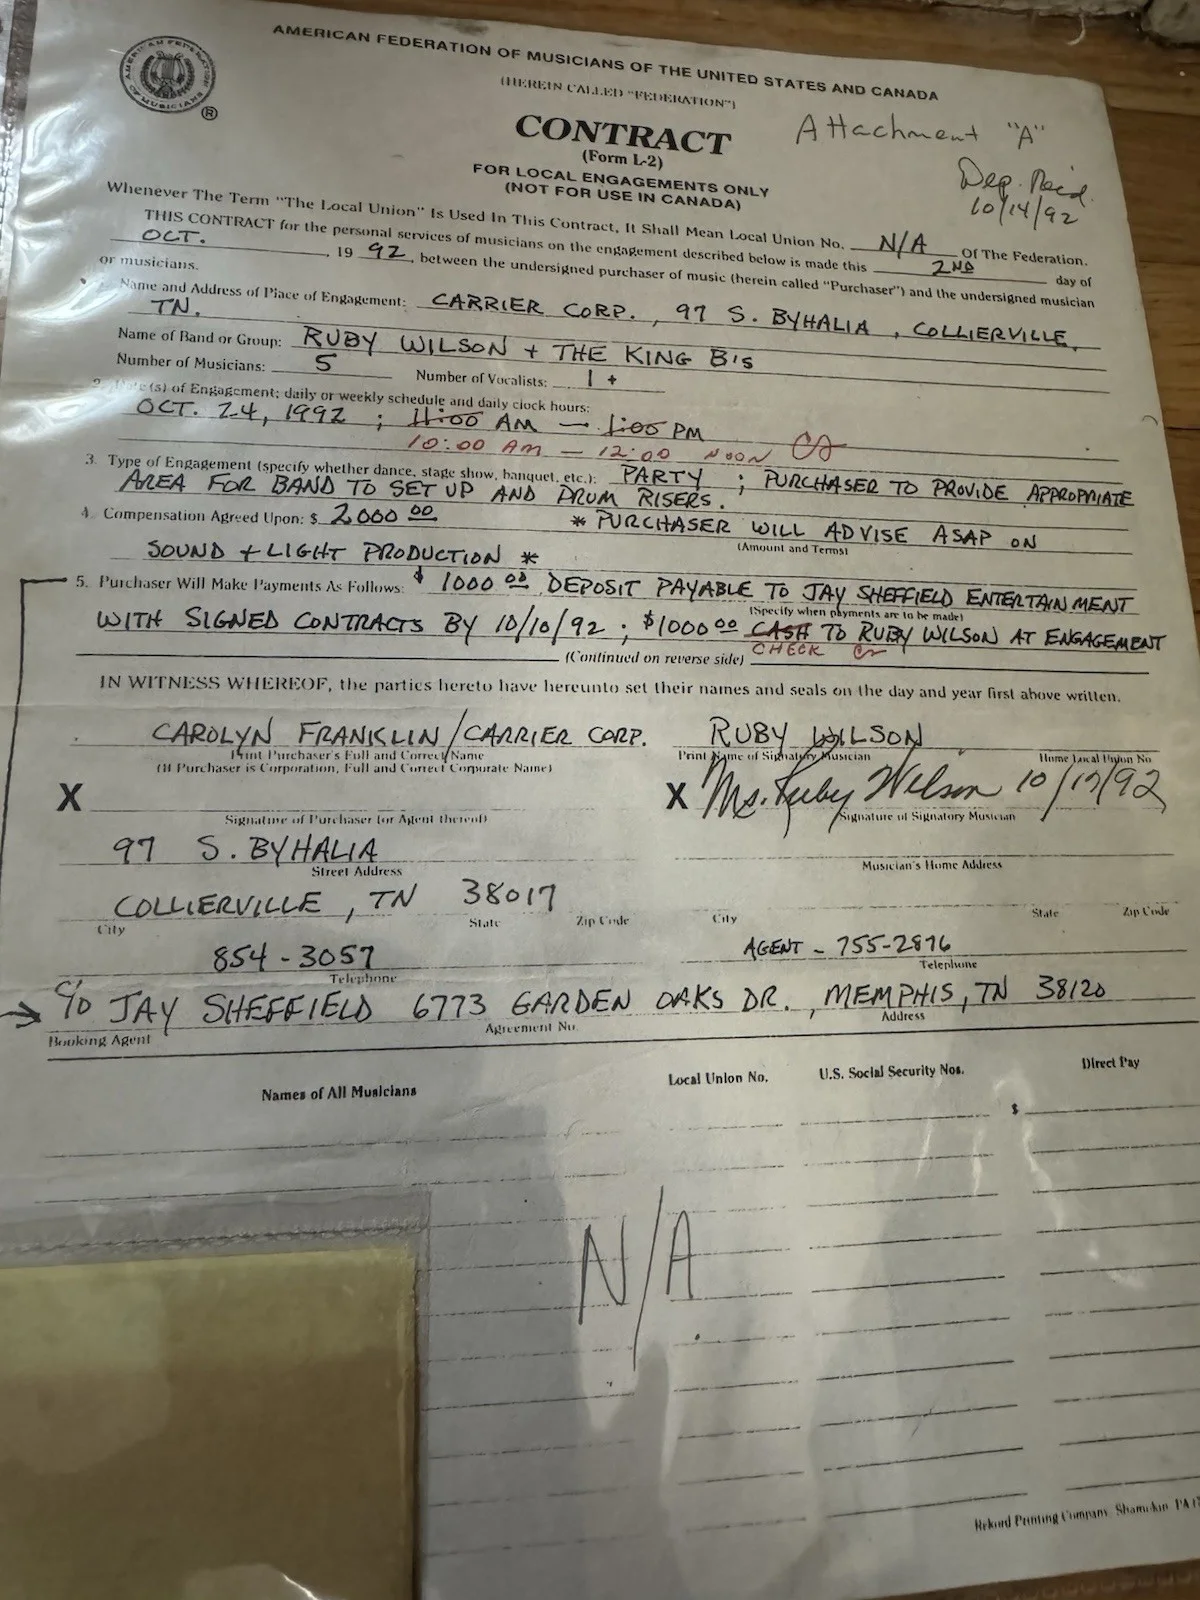 AMERICAN FEDERATION OF MUSICIANS OF THE UNITED STATES AND CANADA
(HEREIN CALLED "FEDERATION")
AMERICAN FEDERATION OF MUSICIANS
®
CONTRACT
(Form L-2)
Attachment "A"
FOR LOCAL ENGAGEMENTS ONLY
(NOT FOR USE IN CANADA)
Dep. Rec'd.
10/14/92
Whenever The Term "The Local Union" Is Used In This Contract, It Shall Mean Local Union No. N/A Of The Federation.
THIS CONTRACT for the personal services of musicians on the engagement described below is made this 2ND day of
OCT. , 19 92, between the undersigned purchaser of music (herein called "Purchaser") and the undersigned musician
or musicians.
Name and Address of Place of Engagement: CARRIER CORP., 97 S. BYHALIA, COLLIERVILLE,
TN.
Name of Band or Group: RUBY WILSON + THE KING B's
Number of Musicians: 5 Number of Vocalists: 1 +
2. Date(s) of Engagement; daily or weekly schedule and daily clock hours:
OCT. 24, 1992 ; 11:00 AM — 1:00 PM
10:00 AM — 12:00 NOON
3. Type of Engagement (specify whether dance, stage show, banquet, etc.): PARTY ; PURCHASER TO PROVIDE APPROPRIATE
AREA FOR BAND TO SET UP AND DRUM RISERS.
4. Compensation Agreed Upon: $ 2000 00 * PURCHASER WILL ADVISE ASAP ON
(Amount and Terms)
SOUND + LIGHT PRODUCTION *
5. Purchaser Will Make Payments As Follows: $ 1000 00 DEPOSIT PAYABLE TO JAY SHEFFIELD ENTERTAINMENT
(Specify when payments are to be made)
WITH SIGNED CONTRACTS BY 10/10/92 ; $1000 00 CASH TO RUBY WILSON AT ENGAGEMENT
CHECK
(Continued on reverse side)
IN WITNESS WHEREOF, the parties hereto have hereunto set their names and seals on the day and year first above written.
CAROLYN FRANKLIN/CARRIER CORP. RUBY WILSON
Print Purchaser's Full and Correct Name Print Name of Signatory Musician Home Local Union No
(If Purchaser is Corporation, Full and Correct Corporate Name)
X X Ms. Ruby Wilson 10/17/92
Signature of Purchaser (or Agent thereof) Signature of Signatory Musician
97 S. BYHALIA
Street Address Musician's Home Address
COLLIERVILLE, TN 38017
City State Zip Code City State Zip Code
854-3057 AGENT - 755-2876
Telephone Telephone
→ c/o JAY SHEFFIELD 6773 GARDEN OAKS DR., MEMPHIS, TN 38120
Booking Agent Agreement No. Address
Names of All Musicians Local Union No. U.S. Social Security Nos. Direct Pay
$
N/A
Rekord Printing Company, Shamokin, PA